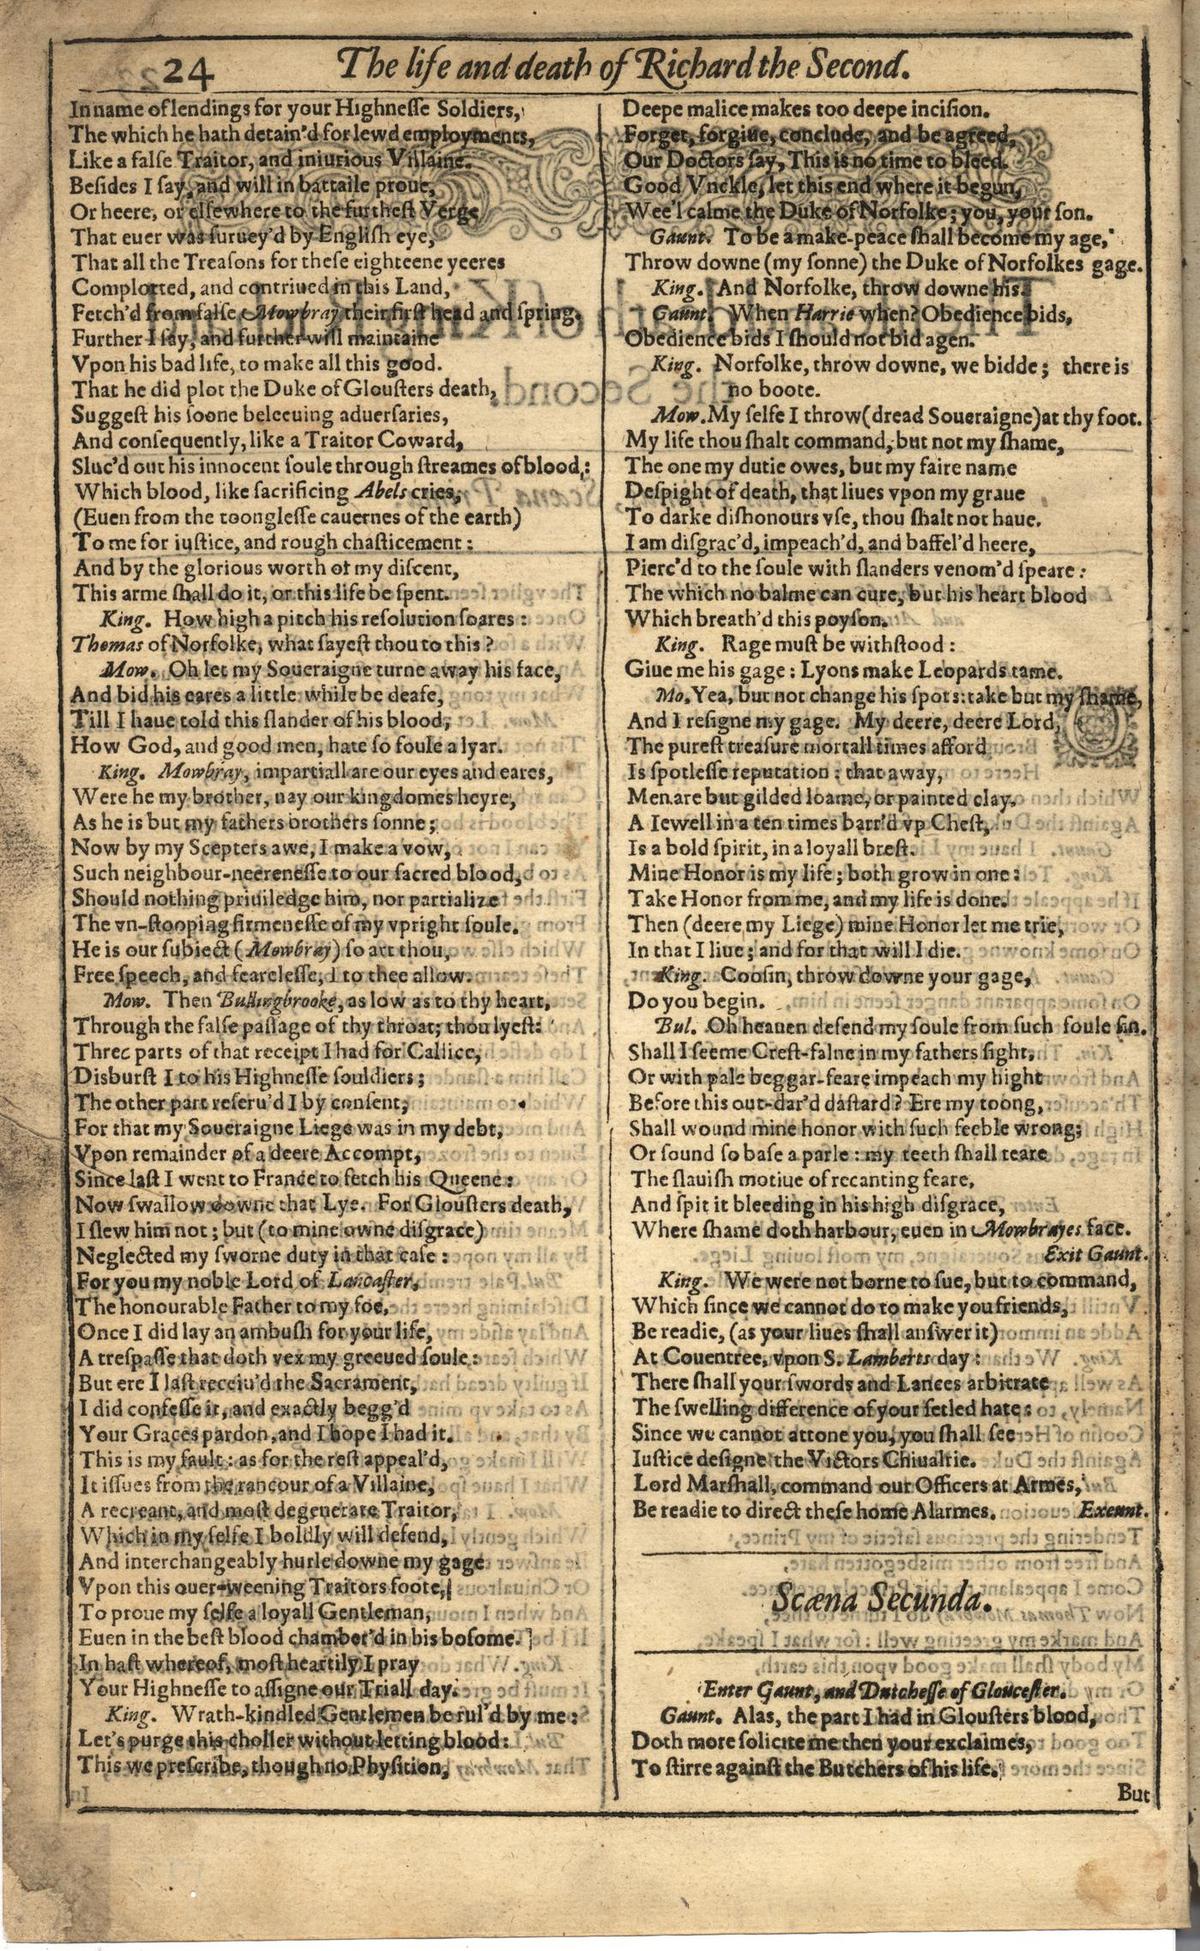 24
The life and death of Richard the Second.
In name of lendings for your Highnesse Soldiers,
The which he hath detain'd for lewd employments,
Like a false Traitor, and iniurious Villaine.
Besides I say, and will in battaile proue,
Or heere, or elsewhere to the furthest Verge
That euer was suruey'd by English eye,
That all the Treasons for these eighteene yeeres
Complotted, and contriued in this Land,
Fetch'd from false Mowbray their first head and spring.
Further I say, and further will maintaine
Vpon his bad life, to make all this good.
That he did plot the Duke of Glousters death,
Suggest his soone beleeuing aduersaries,
And consequently, like a Traitor Coward,
Sluc'd out his innocent soule through streames of blood:
Which blood, like sacrificing Abels cries,
(Euen from the toonglesse cauernes of the earth)
To me for iustice, and rough chasticement:
And by the glorious worth of my discent,
This arme shall do it, or this life be spent.
King. How high a pitch his resolution soares:
Thomas of Norfolke, what sayest thou to this?
Mow. Oh let my Soueraigne turne away his face,
And bid his eares a little while be deafe,
Till I haue told this slander of his blood,
How God, and good men, hate so foule a lyar.
King. Mowbray, impartiall are our eyes and eares,
Were he my brother, nay our kingdomes heyre,
As he is but my fathers brothers sonne;
Now by my Scepters awe, I make a vow,
Such neighbour-neerenesse to our sacred blood,
Should nothing priuiledge him, nor partialize
The vn-stooping firmenesse of my vpright soule.
He is our subiect (Mowbray) so art thou,
Free speech, and fearelesse, I to thee allow.
Mow. Then Bullingbrooke, as low as to thy heart,
Through the false passage of thy throat; thou lyest:
Three parts of that receipt I had for Callice,
Disburst I to his Highnesse souldiers;
The other part reseru'd I by consent,
For that my Soueraigne Liege was in my debt,
Vpon remainder of a deere Accompt,
Since last I went to France to fetch his Queene:
Now swallow downe that Lye. For Glousters death,
I slew him not; but (to mine owne disgrace)
Neglected my sworne duty in that case:
For you my noble Lord of Lancaster,
The honourable Father to my foe,
Once I did lay an ambush for your life,
A trespasse that doth vex my greeued soule:
But ere I last receiu'd the Sacrament,
I did confesse it, and exactly begg'd
Your Graces pardon, and I hope I had it.
This is my fault: as for the rest appeal'd,
It issues from the rancour of a Villaine,
A recreant, and most degenerate Traitor,
Which in my selfe I boldly will defend,
And interchangeably hurle downe my gage
Vpon this ouer-weening Traitors foote,
To proue my selfe a loyall Gentleman,
Euen in the best blood chamber'd in his bosome.
In hast whereof, most heartily I pray
Your Highnesse to assigne our Triall day.
King. Wrath-kindled Gentlemen be rul'd by me:
Let's purge this choller without letting blood:
This we prescribe, though no Physition,
Deepe malice makes too deepe incision.
Forget, forgiue, conclude, and be agreed,
Our Doctors say, This is no time to bleed.
Good Vnckle, let this end where it begun,
Wee'l calme the Duke of Norfolke; you, your son.
Gaunt. To be a make-peace shall become my age,
Throw downe (my sonne) the Duke of Norfolkes gage.
King. And Norfolke, throw downe his.
Gaunt. When Harrie when? Obedience bids,
Obedience bids I should not bid agen.
King. Norfolke, throw downe, we bidde; there is
no boote.
Mow. My selfe I throw (dread Soueraigne) at thy foot.
My life thou shalt command, but not my shame,
The one my dutie owes, but my faire name
Despight of death, that liues vpon my graue
To darke dishonours vse, thou shalt not haue.
I am disgrac'd, impeach'd, and baffel'd heere,
Pierc'd to the soule with slanders venom'd speare:
The which no balme can cure, but his heart blood
Which breath'd this poyson.
King. Rage must be withstood:
Giue me his gage: Lyons make Leopards tame.
Mo. Yea, but not change his spots: take but my shame,
And I resigne my gage. My deere, deere Lord,
The purest treasure mortall times afford
Is spotlesse reputation: that away,
Men are but gilded loame, or painted clay.
A Iewell in a ten times barr'd vp Chest,
Is a bold spirit, in a loyall brest.
Mine Honor is my life; both grow in one:
Take Honor from me, and my life is done.
Then (deere my Liege) mine Honor let me trie,
In that I liue; and for that will I die.
King. Coosin, throw downe your gage,
Do you begin.
Bul. Oh heauen defend my soule from such foule sin.
Shall I seeme Crest-falne in my fathers sight,
Or with pale beggar-feare impeach my hight
Before this out-dar'd dastard? Ere my toong,
Shall wound mine honor with such feeble wrong;
Or sound so base a parle: my teeth shall teare
The slauish motiue of recanting feare,
And spit it bleeding in his high disgrace,
Where shame doth harbour, euen in Mowbrayes face.
Exit Gaunt.
King. We were not borne to sue, but to command,
Which since we cannot do to make you friends,
Be readie, (as your liues shall answer it)
At Couentree, vpon S. Lamberts day:
There shall your swords and Lances arbitrate
The swelling difference of your setled hate:
Since we cannot attone you, you shall see
Iustice designe the Victors Chiualrie.
Lord Marshall, command our Officers at Armes,
Be readie to direct these home Alarmes. Exeunt.
Scæna Secunda.
Enter Gaunt, and Dutchesse of Gloucester.
Gaunt. Alas, the part I had in Glousters blood,
Doth more solicite me then your exclaimes,
To stirre against the Butchers of his life.
But